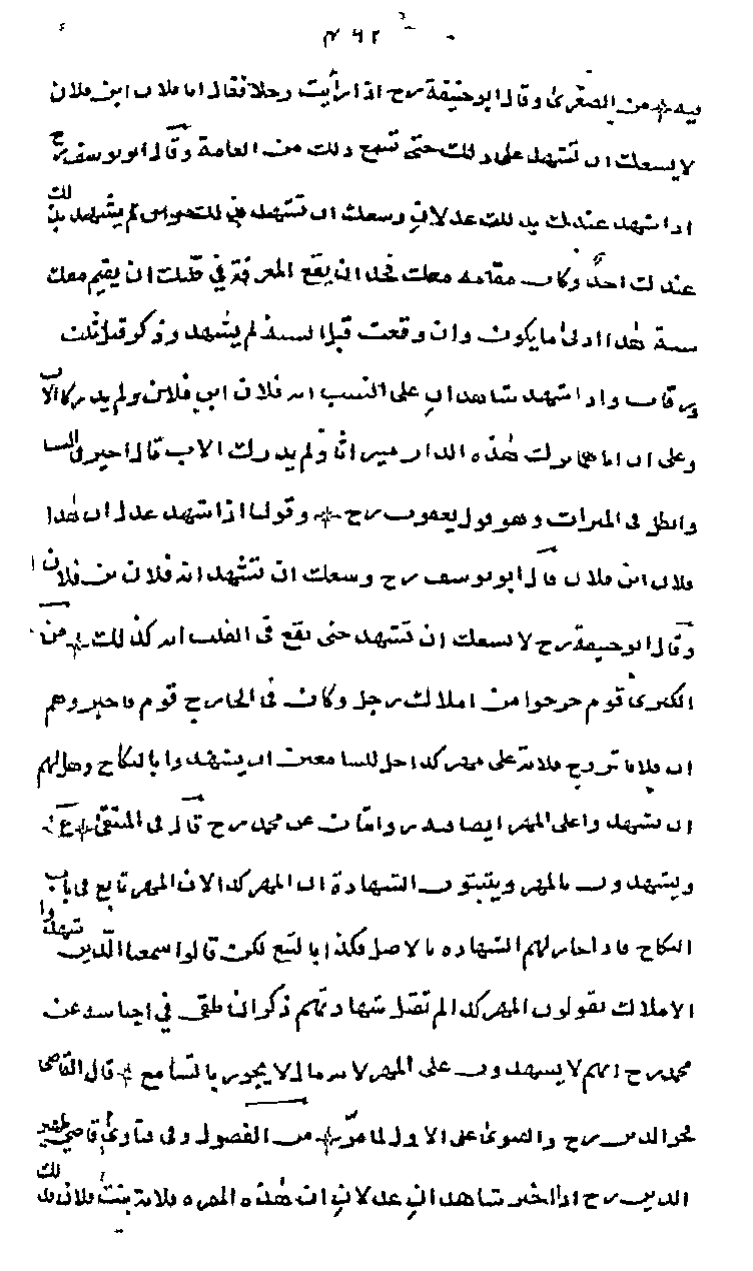 فيه من الصغرى وقال ابو حنيفة رح اذا رأيت رجلا فقال انا فلان ابن فلان
لا يسعك ان تشهد على ذلك حتى تسمع ذلك من العامة وقال ابو يوسف رح
اذا شهد عندك بذلك عدلان وسعك ان تشهد فى ذلك وان لم يشهد بذلك
عندك احد وكان مقامه معك فحد ان يقع المعرفة في قلبك ان يقيم معك
سنة هذا ادنى ما يكون وان وقعت قبل السنة لم يشهد وذكر قبل ثلث
ورقات واذا شهد شاهدان على النسب انه فلان ابن فلان ولم يدركا الاب
وعلى ان اباهما ترك هذه الدار ميراثا ولم يدرك الاب قال اجيز فى النسب
وابطل فى الميراث وهو قول يعقوب رح وقولنا اذا شهد عدل ان هذا
فلان ابن فلان قال ابو يوسف رح وسعك ان تشهد انه فلان بن فلان
وقال ابو حنيفة رح لا يسعك ان تشهد حتى يقع فى القلب انه كذلك من
الكبرى قوم خرجوا من املاك رجل وكان فى الخارج قوم فاخبروهم
ان فلانا تزوج فلانة على مهر كذا حل للسامعين ان يشهدوا بالنكاح وهل لهم
ان يشهدوا على المهر ايضا فيه روايتان عن محمد رح قال فى المنتقى
ويشهدون بالمهر ويثبتون الشهادة ان المهر كذا لان المهر تابع فى باب
النكاح فاذا جاز لهم الشهادة بالاصل فكذا بالتبع لكن قالوا سمعنا الذين شهدوا
الاملاك يقولون المهر كذا لم تقبل شهادتهم ذكر الناطفى في اجناسه عن
محمد رح انهم لا يشهدون على المهر لانه مال لا يجوز بالتسامع قال القاضى
فخر الدين رح والفتوى على الاول لما مر من الفصول وفى فتاوى قاضى ظهير
الدين رح اذا اخبر شاهدان عدلان ان هذه المرءة فلانة بنت فلان بذلك